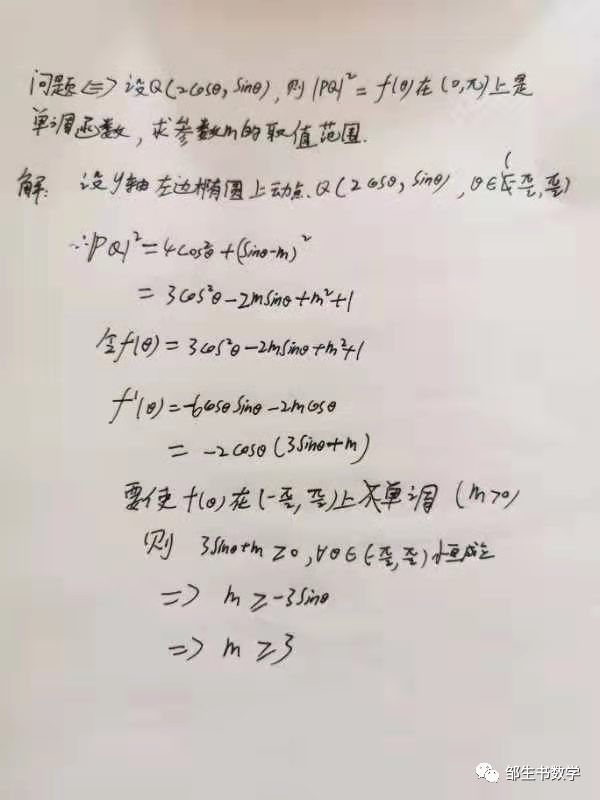 问题⟺设Q(2cosθ, sinθ), 则|PQ|²=f(θ)在(0,π)上是
单调函数, 求参数m的取值范围.
解: 设y轴左边椭圆上动点Q(2cosθ, sinθ), θ∈(-π/2, π/2)
∴|PQ|²=4cos²θ+(sinθ-m)²
=3cos²θ-2msinθ+m²+1
令f(θ)=3cos²θ-2msinθ+m²+1
f'(θ)=-6cosθsinθ-2mcosθ
=-2cosθ(3sinθ+m)
要使f(θ)在(-π/2, π/2)上单调 (m>0)
则 3sinθ+m≥0, ∀θ∈(-π/2, π/2)恒成立
⇒ m≥-3sinθ
⇒ m≥3
邹生书数学